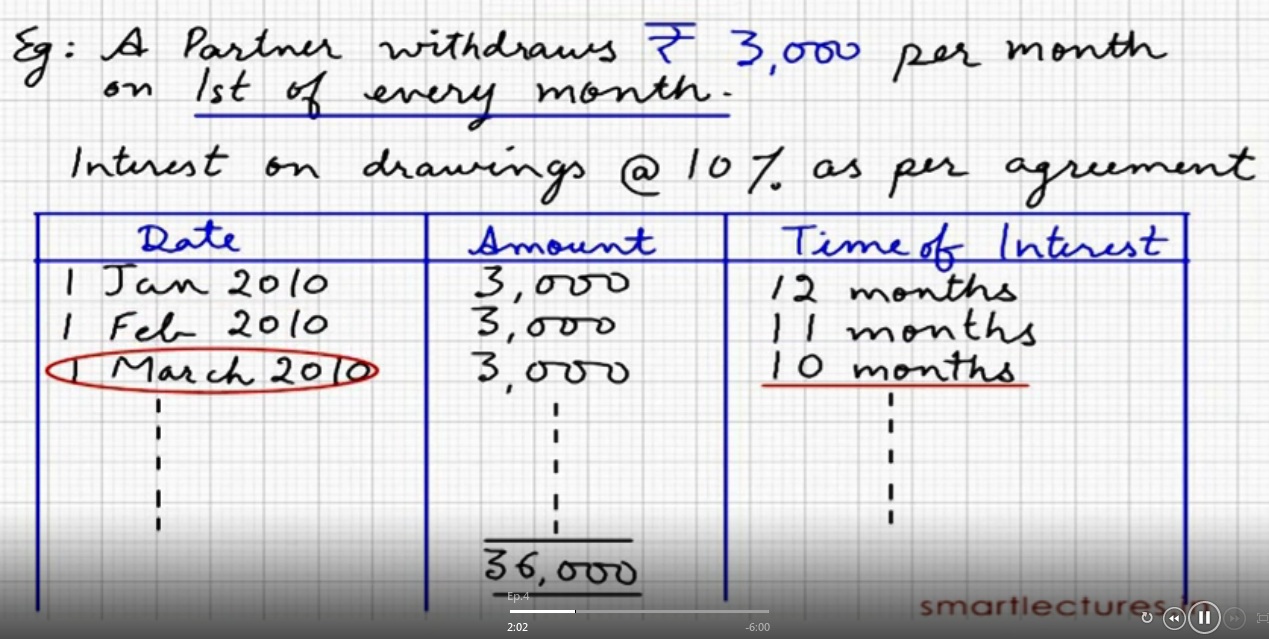 Eg: A Partner withdraws ₹ 3,000 per month
on 1st of every month.
Interest on drawings @ 10% as per agreement
Date Amount Time of Interest
1 Jan 2010 3,000 12 months
1 Feb 2010 3,000 11 months
1 March 2010 3,000 10 months
36,000
Ep.4
smartlectures.in
2:02 -6:00